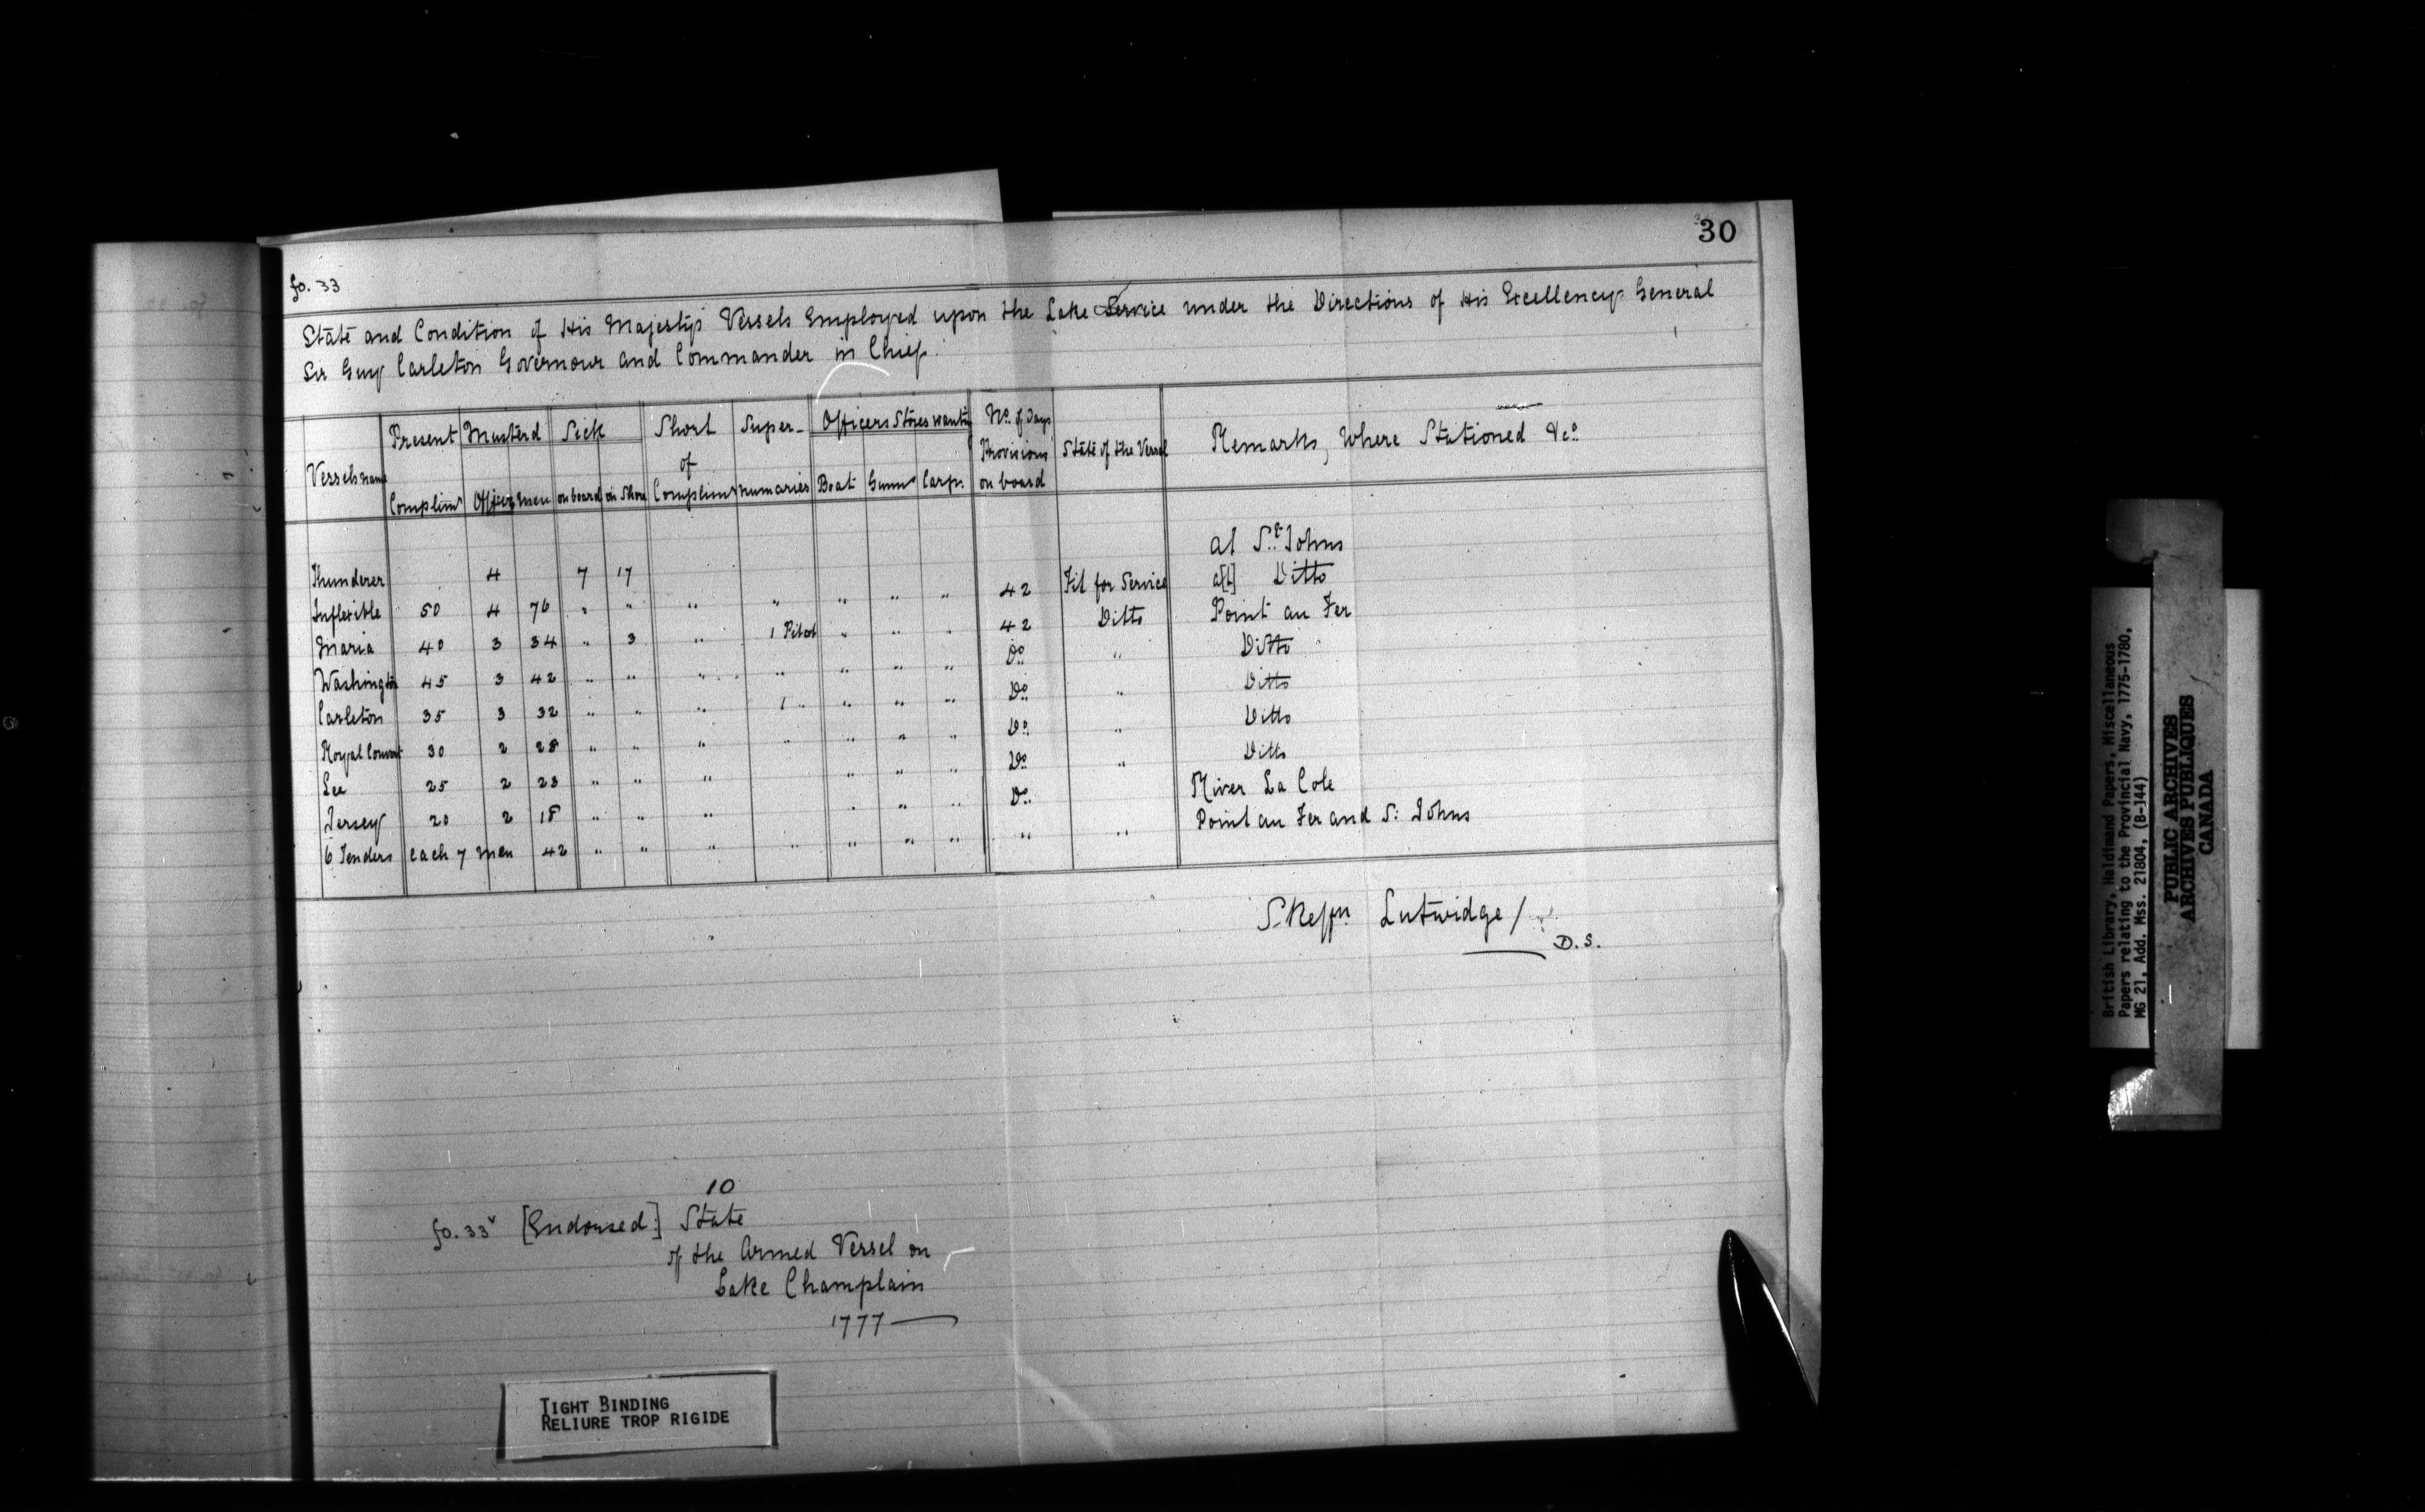 30
fo. 33
State and Condition of His Majestys Vessels Employed upon the Lake Service under the Directions of His Excellency General
Sir Guy Carleton Governour and Commander in Chief.
Vessels name | Present Complimt | Musterd Officers | men | Sick on board | on Shore | Short of Complimt | Supernumaries | Officers Stores wantg Boat | Gunnr | Carpr. | No. of Days Provisions on board | State of the Vessel | Remarks, Where Stationed &co.
Thunderer | | 4 | | 7 | 17 | | | | | | | | at St. Johns
Inflexible | 50 | 4 | 76 | " | " | " | " | " | " | " | 42 | Fit for Service | a[t] Ditto
Maria | 40 | 3 | 34 | " | 3 | " | 1 Pilot | " | " | " | 42 | Ditto | Point au Fer
Washington | 45 | 3 | 42 | " | " | " | " | " | " | " | Do. | " | Ditto
Carleton | 35 | 3 | 32 | " | " | " | 1 " | " | " | " | Do. | " | Ditto
Royal Convert | 30 | 2 | 28 | " | " | " | " | " | " | " | Do. | " | Ditto
Lee | 25 | 2 | 23 | " | " | " | | " | " | " | Do. | " | Ditto
Jersey | 20 | 2 | 18 | " | " | " | | " | " | " | Do. | | River La Cole
6 Tenders | each 7 men | 42 | " | " | " | " | " | " | " | " | " | Point au Fer and S: Johns
Skeffn Lutwidge /
D.S.
10
fo. 33v [Endorsed:] State
of the Armed Vessel on
Lake Champlain
1777
TIGHT BINDING
RELIURE TROP RIGIDE
British Library, Haldimand Papers, Miscellaneous
Papers relating to the Provincial Navy, 1775-1780,
MG 21, Add. Mss. 21804, (B-144)
PUBLIC ARCHIVES
ARCHIVES PUBLIQUES
CANADA